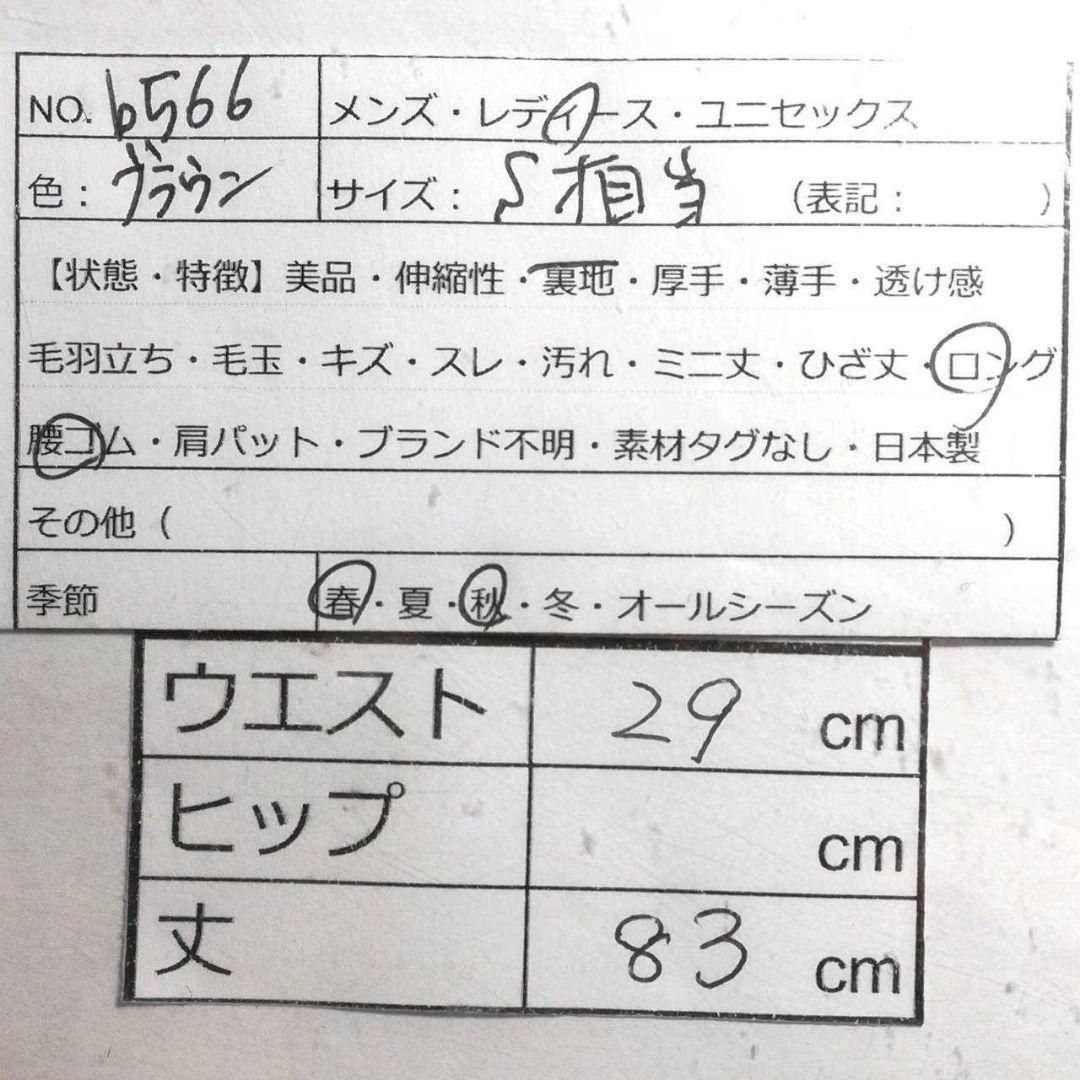 NO. b566 メンズ・レディース・ユニセックス
色： ブラウン サイズ： S相当 （表記： ）
【状態・特徴】美品・伸縮性・裏地・厚手・薄手・透け感
毛羽立ち・毛玉・キズ・スレ・汚れ・ミニ丈・ひざ丈・ロング
腰ゴム・肩パット・ブランド不明・素材タグなし・日本製
その他（ ）
季節 春・夏・秋・冬・オールシーズン
ウエスト 29 cm
ヒップ cm
丈 83 cm